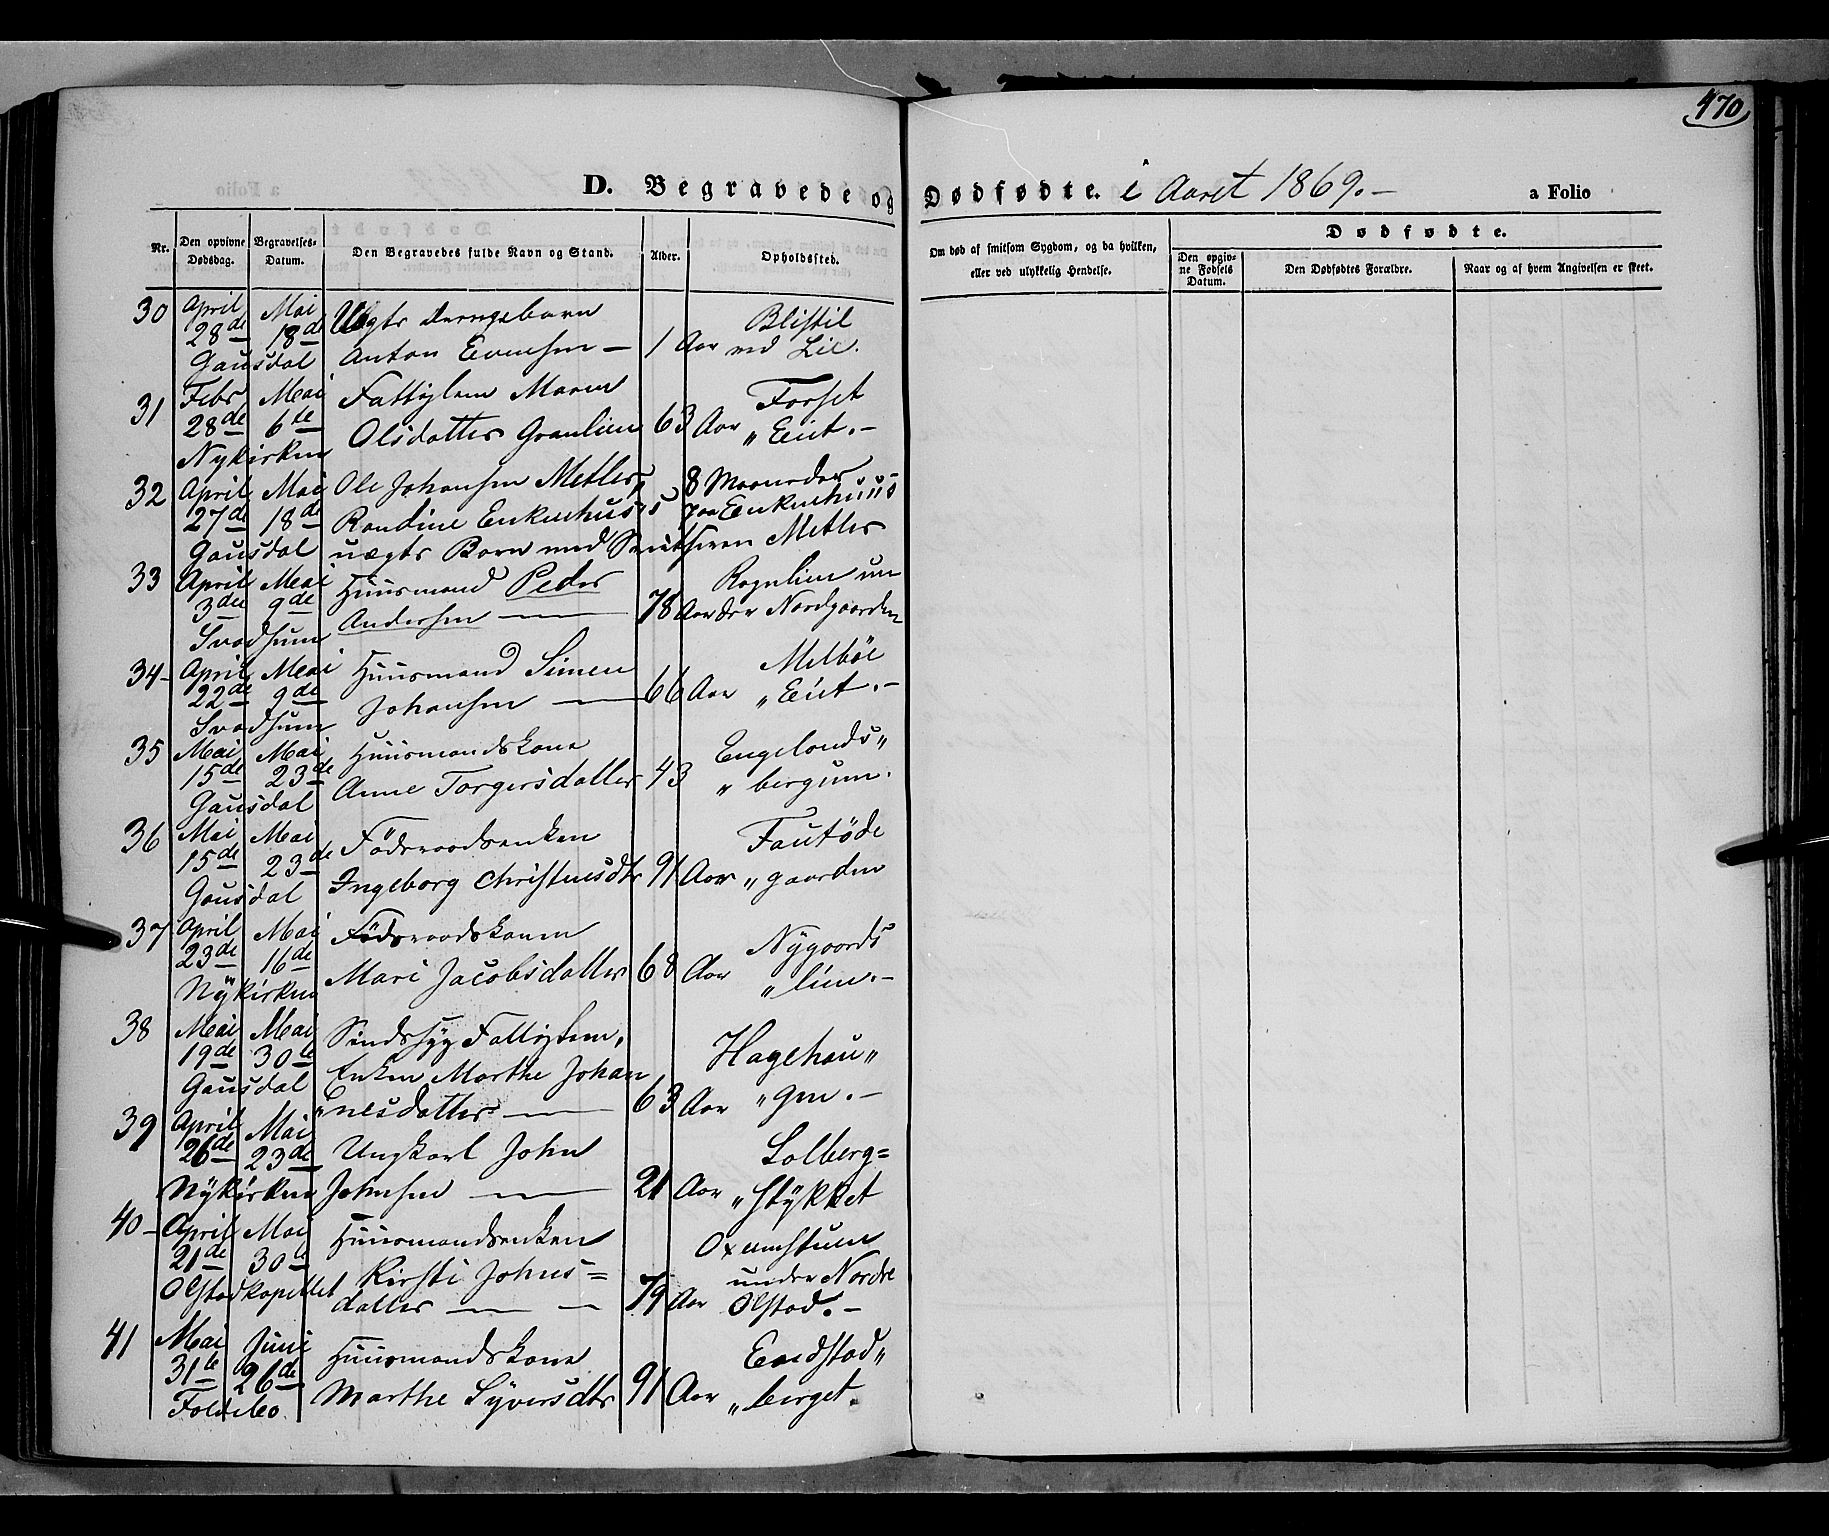 470
D. Begravede og Dødfødte. i Aaret 1869.- a Folio
Nr. Den opgivne Dødsdag. Begravelses-Datum. Den Begravedes fulde Navn og Stand. Alder. Opholdssted.
Om død af smitsom Sygdom, og da hvilken, eller ved ulykkelig Hendelse.
Dødfødte.
Den opgivne Fødsels Datum. Den Dødfødtes Forældre. Naar og af hvem Angivelsen er skeet.
30 April Mai Uægte Drengebarn Blistil
28de 18de
Gausdal Anton Evensen — 1 Aar ved Lie.
31 Febr Mai Fattiglem Maren Forset
28de 6te Olsdatter Granlien 63 Aar „Eiet.-
Nykirken
32 April Mai Ole Johansen Metler, 8 Maaneder
27de 18de Randine Enkenhuus's paa Enkenhuus
Gausdal uægte Barn med Metler
33 April Mai Huusmand Peder Rognlien un
3die 9de Andersen — 78 Aar der Nordgaarden
Svadsum
34- April Mai Huusmand Simen Melböe
22de 9de Johansen — 66 Aar „Eiet.-
Svadsum
35 Mai Mai Huusmandskone Engelands„
15de 23de Anne Torgersdatter 43 „bergum.
Gausdal
36 Mai Mai Födsraadsenken Fautöde
15de 23de
Gausdal Ingeborg Christensdtr 91 Aar „gaarden
37 April Mai Födsraadskonen Nygaards
23de 16de Mari Jacobsdatter 68 Aar „lien.-
Nykirken
38 Mai Mai Sindssyg Fattiglem, Hagehau„
19de 30te Enken Marthe Johan
Gausdal „nesdatter — 63 Aar „gen.-
39 April Mai Ungkarl John Solberg=
26de 23de
Nykirken Johnsen — 21 Aar „stykket
40- April Mai Huusmandsenken Oxumstuen
21de 30te Kirsti Johns= under Nordre
Olstadkapellet datter — — 79 Aar Olstad.-
41 Mai Juni Huusmandskone Enedstad„
31te 26de Marthe Syversdtr 91 Aar „berget.
Follebo.